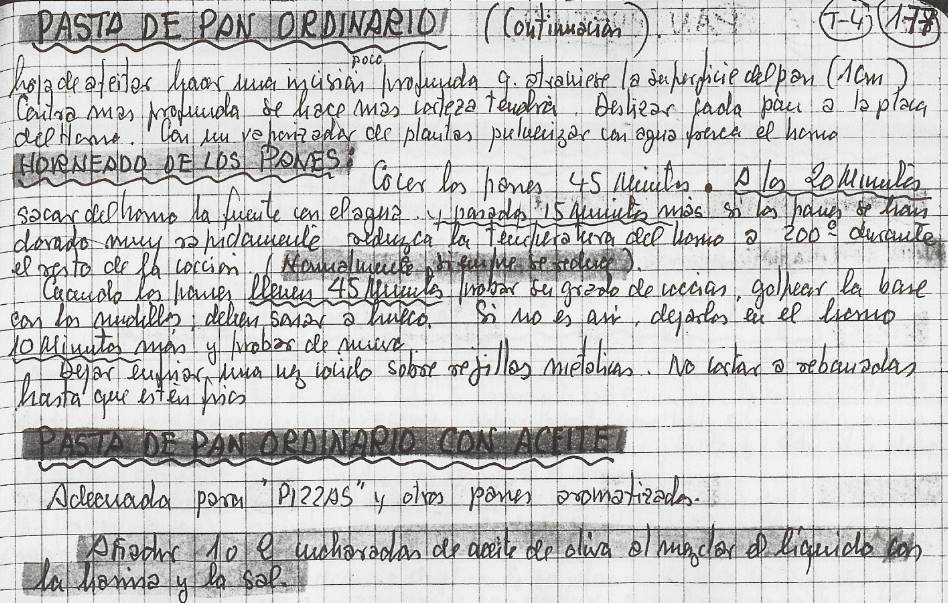 PASTA DE PAN ORDINARIO (Continuación). (T-4) (177)
poco
hoja de afeitar hacer una incisión profunda q. atraviese la superficie del pan (1cm)
Contra mas profunda se hace mas corteza tendrá. Deslizar cada pan a la placa
del Horno. Con un vaporizador de plantas pulverizar con agua fresca el horno
HORNEADO DE LOS PANES:
Cocer los panes 45 Minutos. A los 20 Minutos
sacar del horno la fuente con el agua. y pasados 15 Minutos más si los panes se han
dorado muy rapidamente reduzca la temperatura del horno a 200º durante
el resto de la cocción. (Normalmente, siempre se reduce).
Cuando los panes lleven 45 Minutos probar su grado de cocción, golpear la base
con los nudillos, deben sonar a hueco. Si no es asi, dejarlos en el horno
10 Minutos más y probar de nuevo
Dejar enfriar, una vez cocido sobre rejillas metálicas. No cortar a rebanadas
hasta que estén frios
PASTA DE PAN ORDINARIO CON ACEITE
Adecuada para "PIZZAS" y otros panes aromatizados.
Añadir 1 o 2 cucharadas de aceite de oliva al mezclar el líquido con
la harina y la sal.